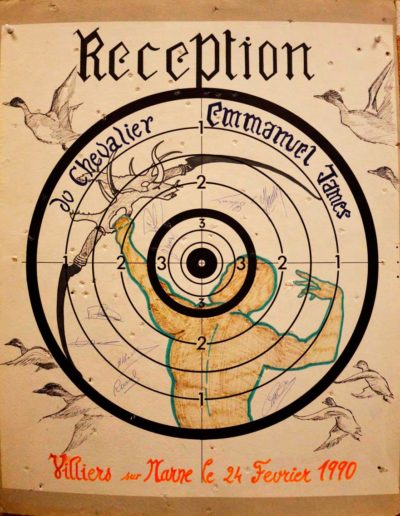 Reception
du Chevalier Emmanuel James
1
2
3
1 2 3 3 2 1
3
2
1
Villiers sur Marne le 24 Fevrier 1990